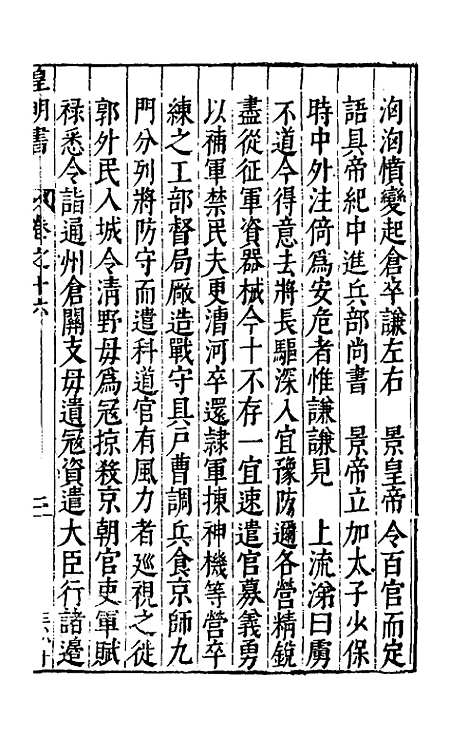 洶洶憤變起倉卒謙左右　景皇帝令百官而定
語具帝紀中進兵部尚書　景帝立加太子少保
時中外注倚爲安危者惟謙謙見　上流涕曰虜
不道今得意去將長驅深入宜豫防邇各營精銳
盡從征軍資器械今十不存一宜速遣官募義勇
以補軍禁民夫更漕河卒還隷軍揀神機等營卒
練之工部督局厰造戰守具戶曹調兵食京師九
門分列將防守而遣科道官有風力者廵視之徙
郭外民入城令清野毋爲冦掠殺京朝官吏軍賦
祿悉令詣通州倉關支毋遺冦資遣大臣行諸邊
皇明書　卷之十六　二